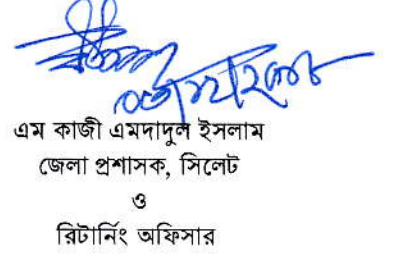 এম কাজী এমদাদুল ইসলাম
জেলা প্রশাসক, সিলেট
ও
রিটার্নিং অফিসার